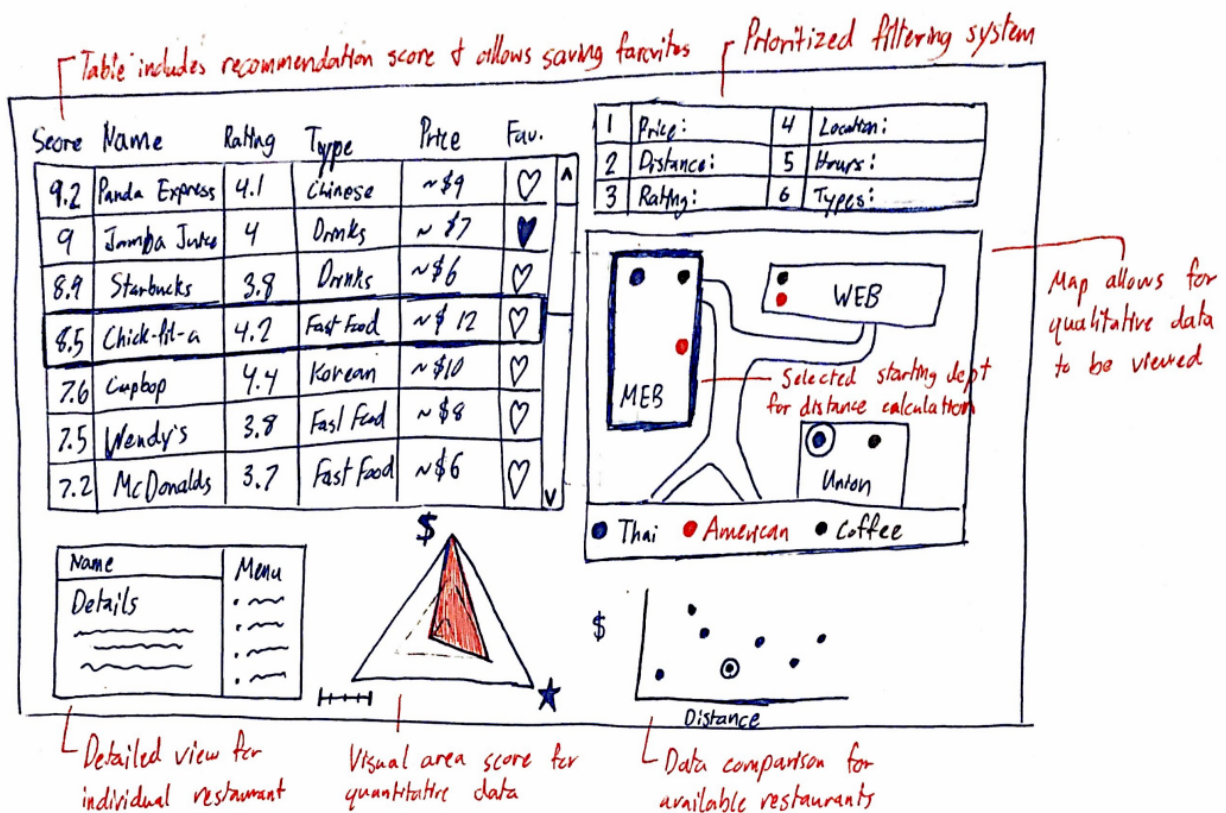 Table includes recommendation score & allows saving favorites
Prioritized filtering system
Score Name Rating Type Price Fav.
9.2 Panda Express 4.1 Chinese ~$9
9 Jamba Juice 4 Drinks ~$7
8.9 Starbucks 3.8 Drinks ~$6
8.5 Chick-fil-a 4.2 Fast Food ~$12
7.6 Cupbop 4.4 Korean ~$10
7.5 Wendy's 3.8 Fast Food ~$8
7.2 McDonalds 3.7 Fast Food ~$6
1 Price: 4 Location:
2 Distance: 5 Hours:
3 Rating: 6 Types:
MEB
WEB
Union
Selected starting dept
for distance calculation
Thai American Coffee
Map allows for
qualitative data
to be viewed
Name
Details
Menu
$
$
Distance
Detailed view for
individual restaurant
Visual area score for
quantitative data
Data comparison for
available restaurants